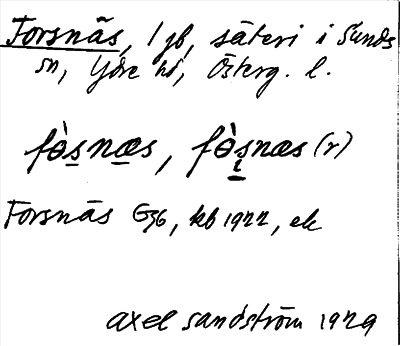 Forsnäs, 1 gb, säteri i Sunds
sn, Ydre hd, Österg. l.
fɵ̀s̠næ̠s, fɵ̀s̨næs (r)
Forsnäs G36, kb 1922, ek
Axel Sandström 1929